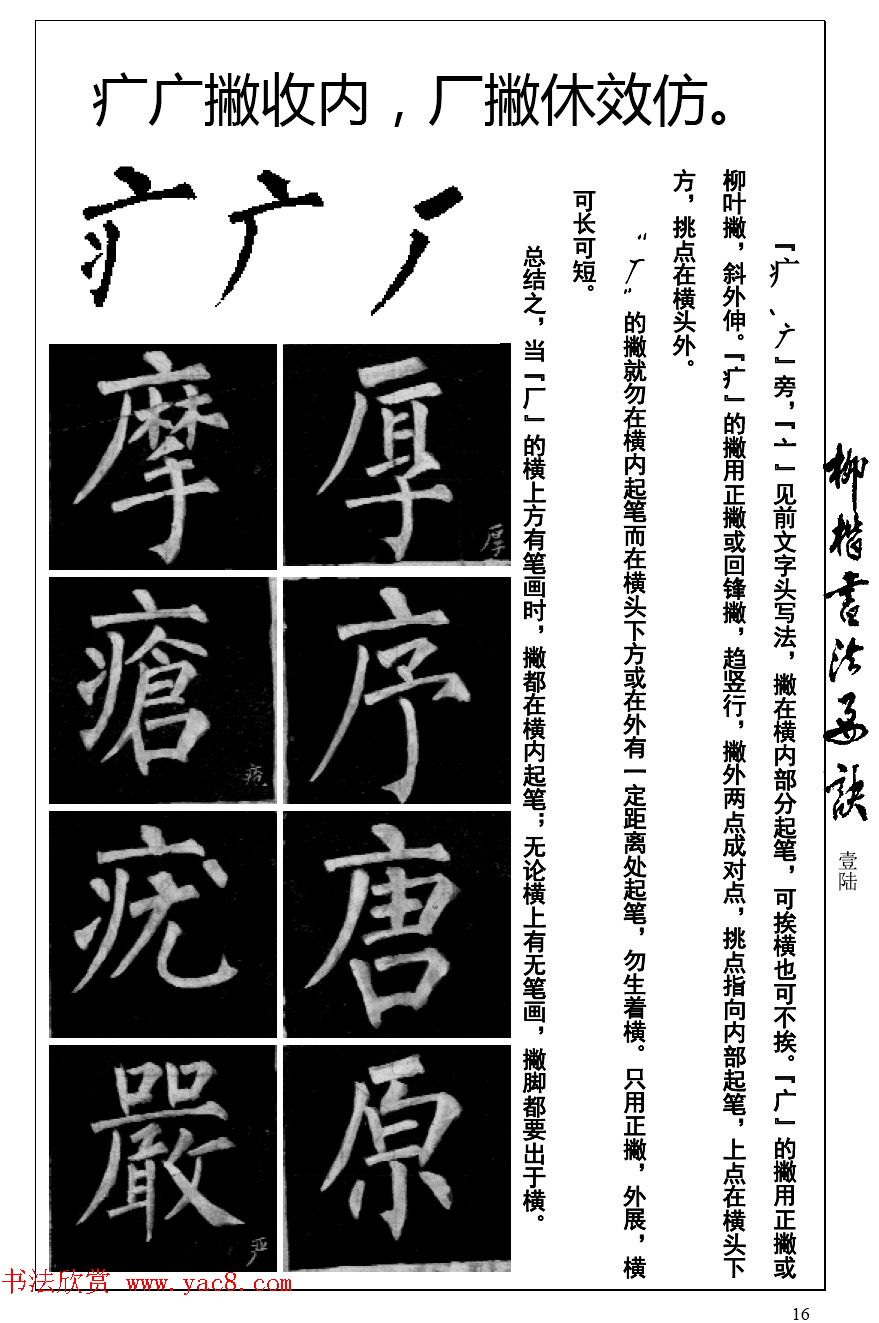 疒广撇收内，厂撇休效仿。
疒 广 厂
『疒、广』旁，『亠』见前文字头写法，撇在横内部分起笔，可挨横也可不挨。『广』的撇用正撇或
柳叶撇，斜外伸。『疒』的撇用正撇或回锋撇，趋竖行，撇外两点成对点，挑点指向内部起笔，上点在横头下
方，挑点在横头外。
“厂”的撇就勿在横内起笔而在横头下方或在外有一定距离处起笔，勿生着横。只用正撇，外展，横
可长可短。
总结之，当『厂』的横上方有笔画时，撇都在横内起笔；无论横上有无笔画，撇脚都要出于横。
厚
厚
序
唐
原
摩
瘡
疮
疣
嚴
严
柳楷书法要诀
壹陆
书法欣赏 www.yac8.com
16